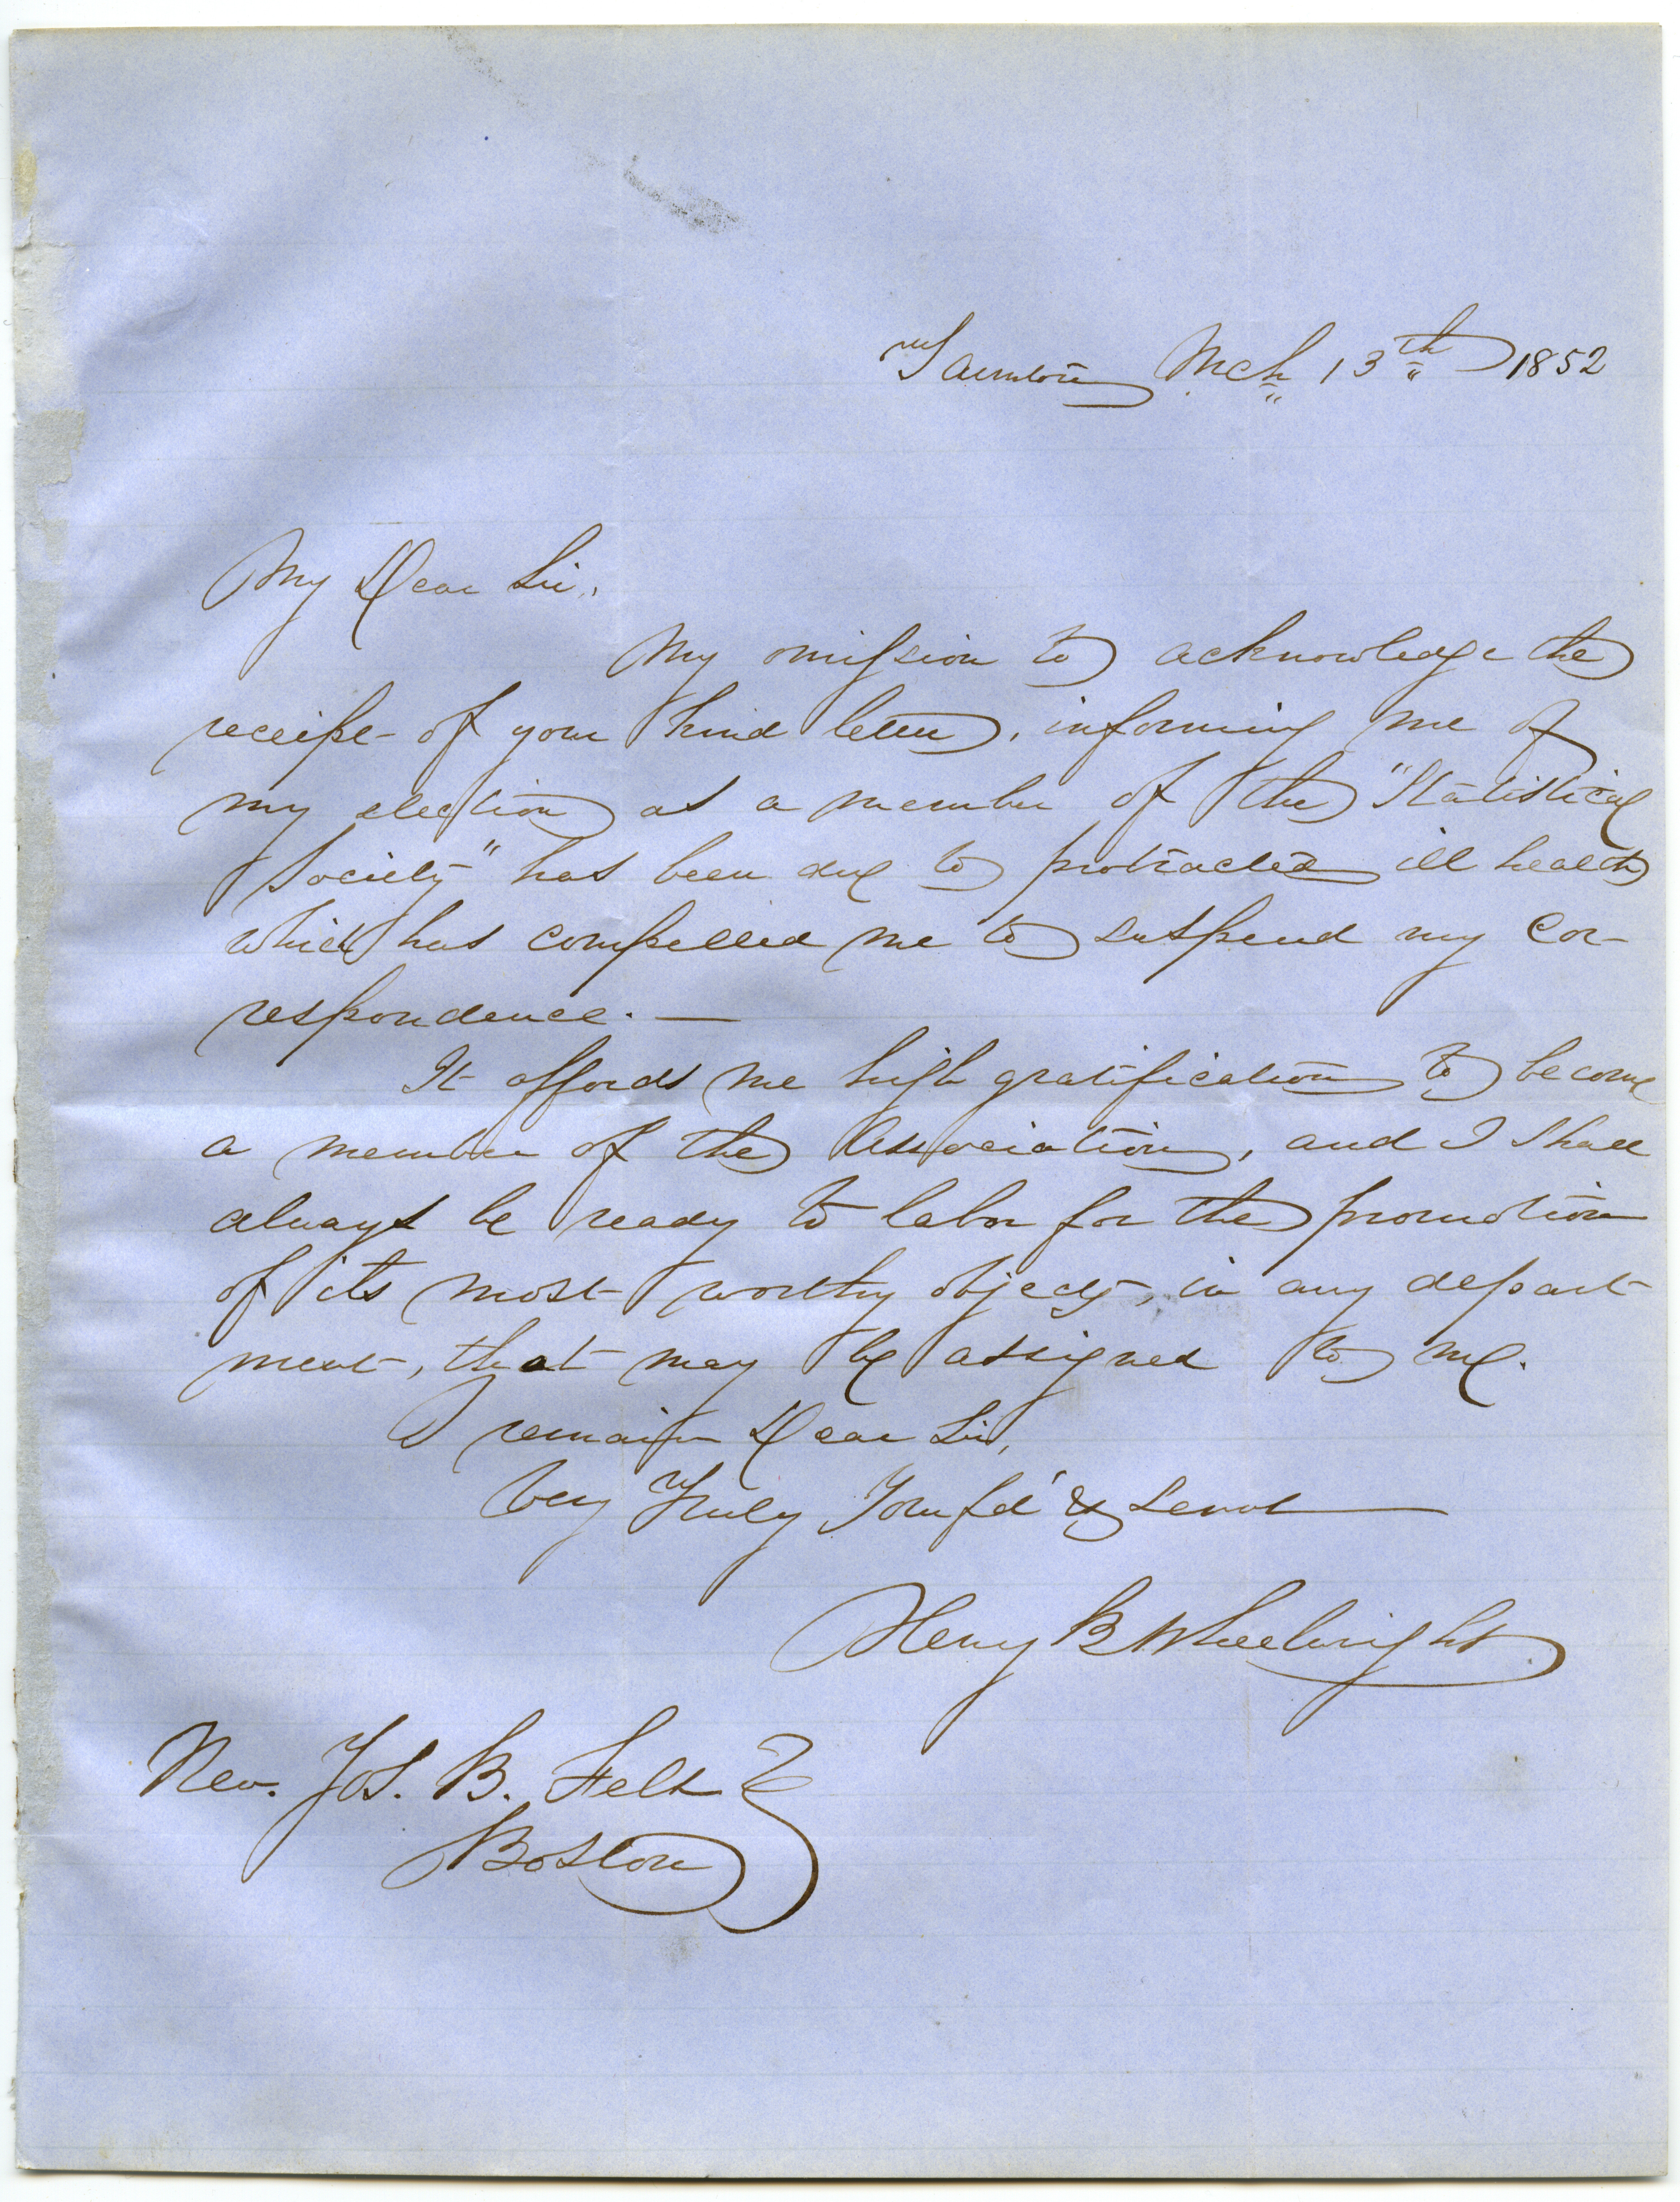 Taunton Mch 13th 1852
My Dear Sir,
My omission to acknowledge the
receipt of your kind letter, informing me of
my election as a member of the "Statistical
Society" has been due to protracted ill health
which has compelled me to suspend my cor-
respondence. —
It affords me high gratification to become
a member of the Association, and I shall
always be ready to labor for the promotion
of its most worthy objects, in any depart
ment, that may be assigned to me.
I remain Dear Sir,
Very Truly Your fd & Servt
Henry B Wheelwright
Rev. Jos. B. Felt
Boston